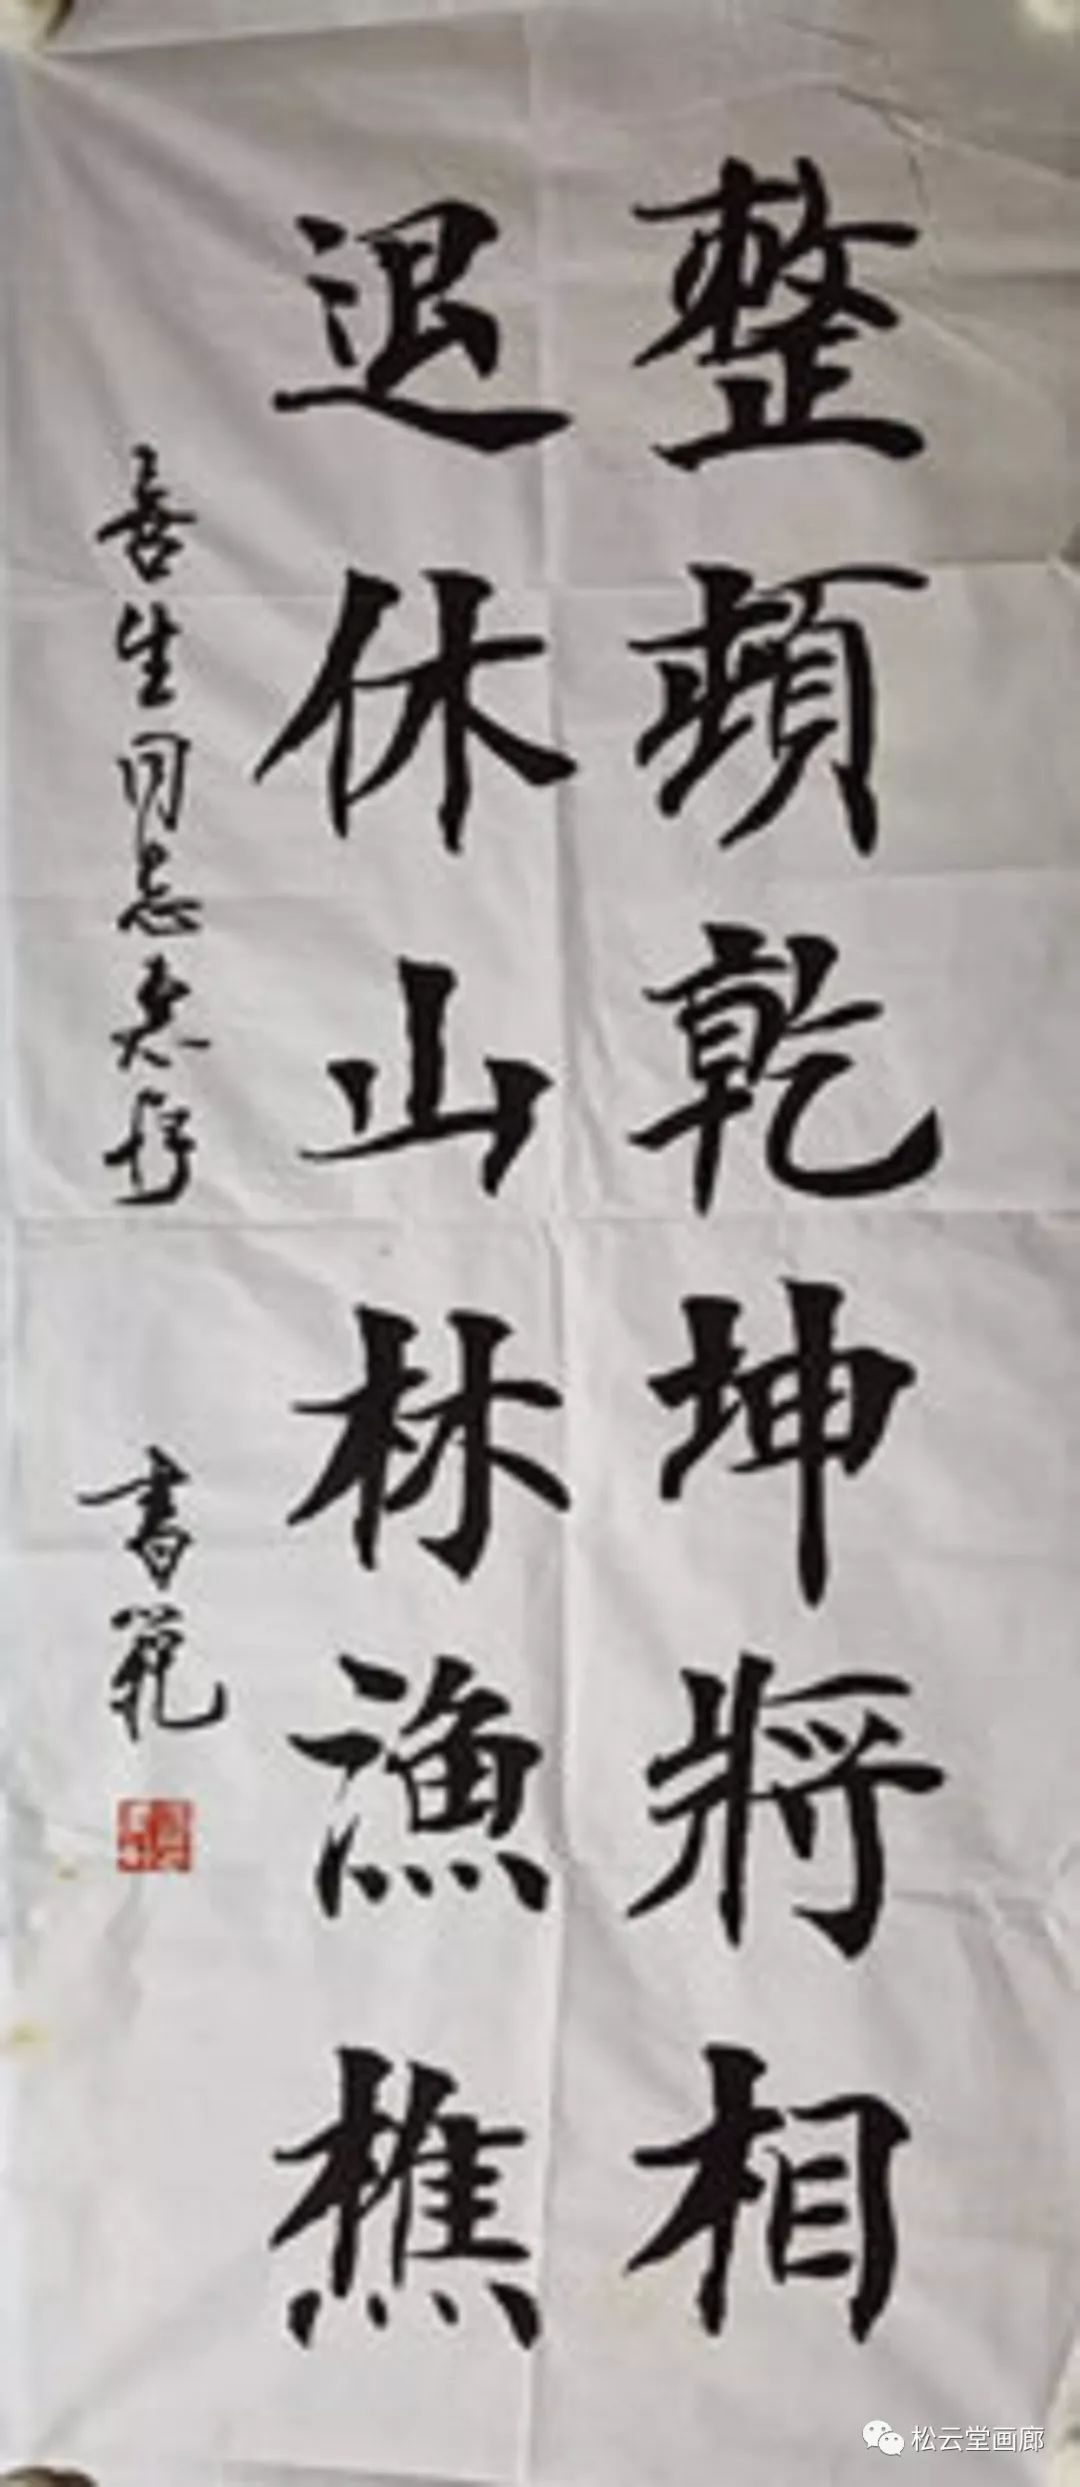 整頓乾坤將相
退休山林漁樵
喜生同志忝存
書範
松云堂画廊